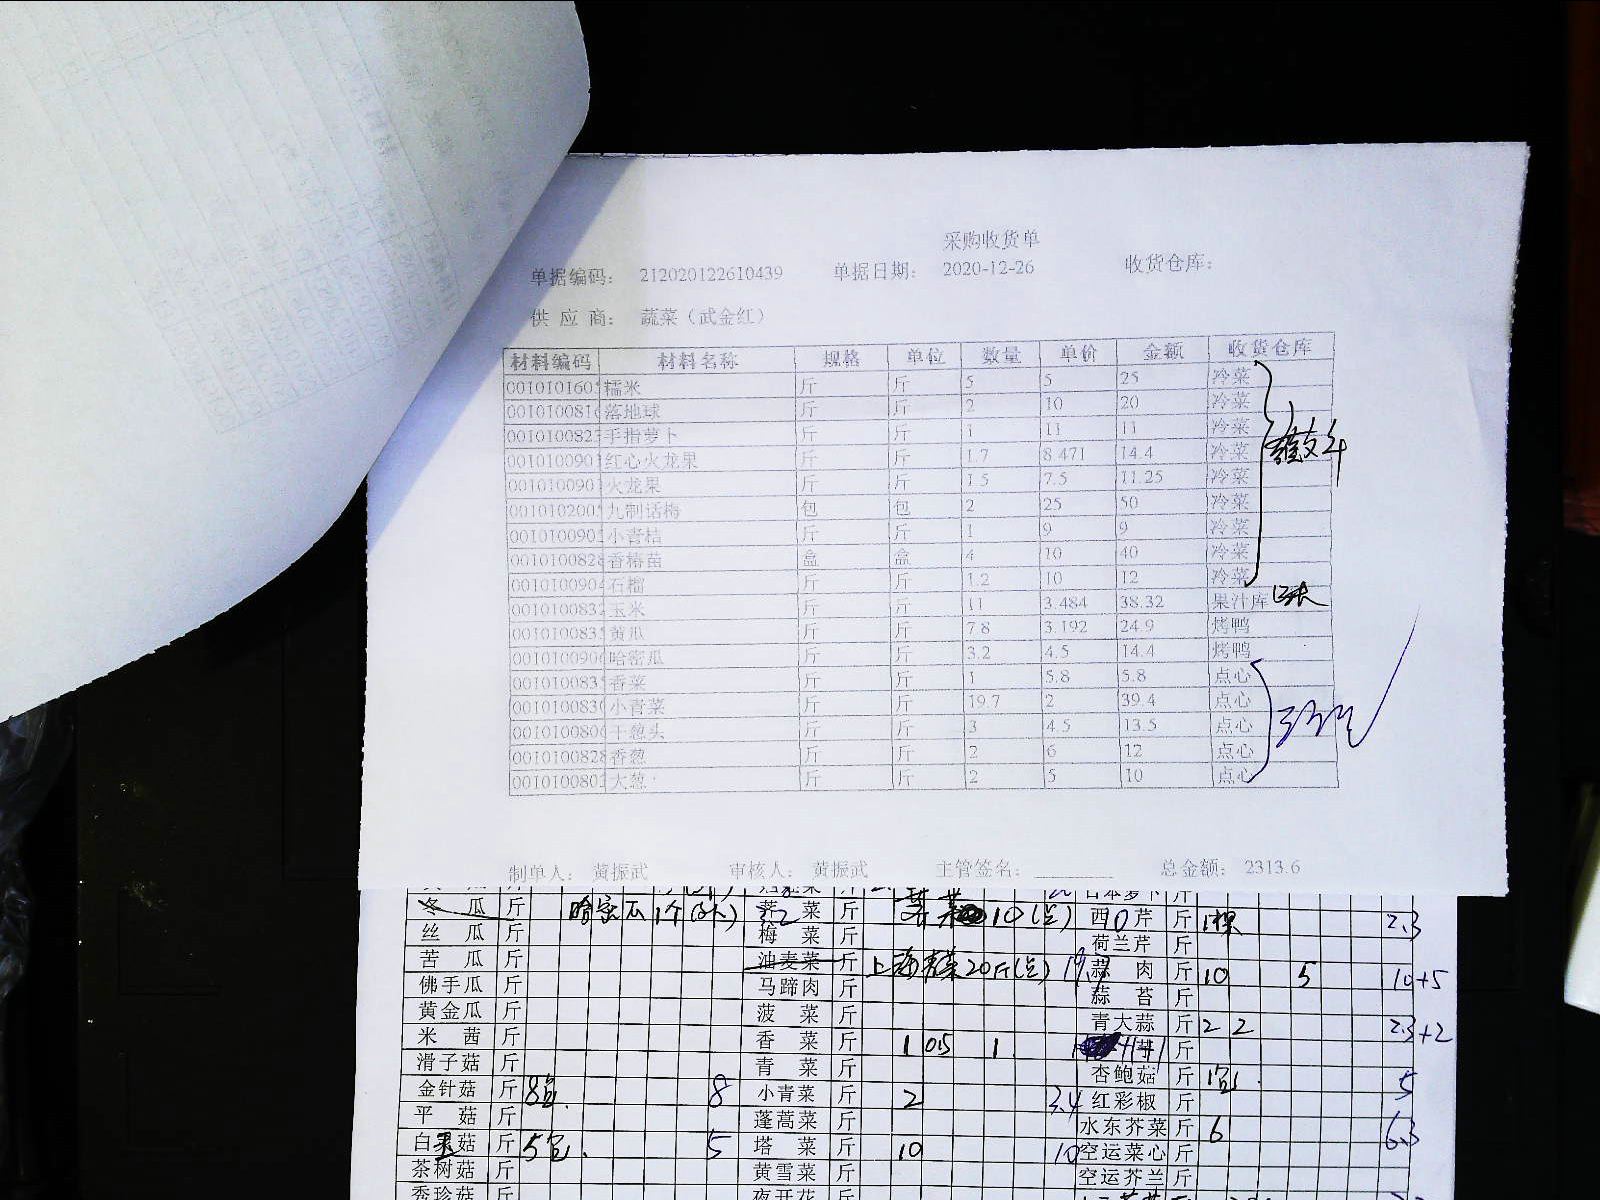 采购收货单
单据编码： 212020122610439 单据日期： 2020-12-26 收货仓库：
供 应 商： 蔬菜（武金红）
材料编码 材料名称 规格 单位 数量 单价 金额 收货仓库
001010160 糯米 斤 斤 5 5 25 冷菜
001010081 落地球 斤 斤 2 10 20 冷菜
001010082 手指萝卜 斤 斤 1 11 11 冷菜
001010090 红心火龙果 斤 斤 1.7 8.471 14.4 冷菜
001010090 火龙果 斤 斤 1.5 7.5 11.25 冷菜
001010200 九制话梅 包 包 2 25 50 冷菜
001010090 小青桔 斤 斤 1 9 9 冷菜
001010082 香椿苗 盒 盒 4 10 40 冷菜
001010090 石榴 斤 斤 1.2 10 12 冷菜
001010083 玉米 斤 斤 11 3.484 38.32 果汁库
001010083 黄瓜 斤 斤 7.8 3.192 24.9 烤鸭
001010090 哈密瓜 斤 斤 3.2 4.5 14.4 烤鸭
001010083 香菜 斤 斤 1 5.8 5.8 点心
001010083 小青菜 斤 斤 19.7 2 39.4 点心
001010080 干葱头 斤 斤 3 4.5 13.5 点心
001010082 香葱 斤 斤 2 6 12 点心
001010080 大葱 斤 斤 2 5 10 点心
制单人： 黄振武 审核人： 黄振武 主管签名： 总金额： 2313.6
冬 瓜 斤 哈密瓜1个 菜 斤 10(点) 西 芹 斤 1棵 2.3
丝 瓜 斤 梅 菜 斤 荷兰芹 斤
苦 瓜 斤 油麦菜 斤 上海青菜20斤(点) 蒜 肉 斤 10 5 10+5
佛手瓜 斤 马蹄肉 斤 蒜 苔 斤
黄金瓜 斤 菠 菜 斤 青大蒜 斤 2 2 2.3+2
米 茜 斤 香 菜 斤 1 0.5 1 斤
滑子菇 斤 青 菜 斤 杏鲍菇 斤 1包 5
金针菇 斤 8包 8 小青菜 斤 2 3.4 红彩椒 斤
平 菇 斤 蓬蒿菜 斤 水东芥菜 斤 6 6.3
白 菇 斤 5包 5 塔 菜 斤 10 10 空运菜心 斤
茶树菇 斤 黄雪菜 斤 空运芥兰 斤
秀珍菇 斤 夜开花 斤